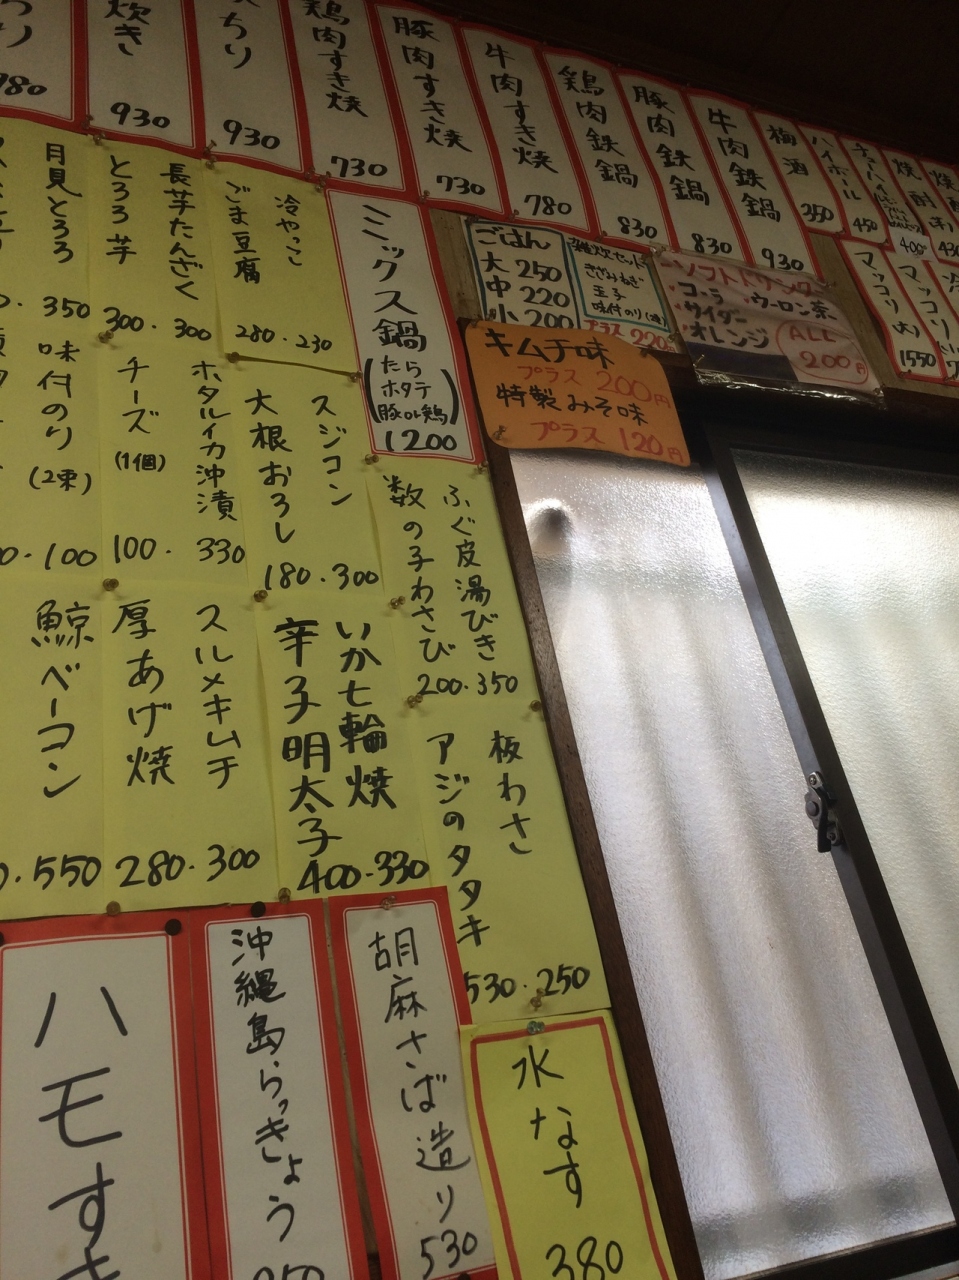 780
炊き
930
ちり
930
鶏肉すき焼
730
豚肉すき焼
730
牛肉すき焼
780
鶏肉鉄鍋
830
豚肉鉄鍋
830
牛肉鉄鍋
930
梅酒
350
ハイボール
450
焼酎
400
430
マッコリ(大)
1550
マッコリ
ごはん
大 250
中 220
小 200
雑炊セット
きざみねぎ
玉子
味付のり(2束)
プラス 220円
ソフトドリンク
・コーラ ・ウーロン茶
・サイダー
・オレンジ
ALL
200円
キムチ味
プラス 200円
特製みそ味
プラス 120円
ミックス鍋
(たら
ホタテ
豚or鶏)
1200
冷やっこ
ごま豆腐
280・230
長芋たんざく
とろろ芋
300・300
月見とろろ
350
スジコン
大根おろし
180・300
ホタルイカ沖漬
チーズ
(1個)
100・330
味付のり
(2束)
100
ふぐ皮湯びき
数の子わさび
200・350
いか七輪焼
辛子明太子
400・330
スルメキムチ
厚あげ焼
280・300
鯨ベーコン
550
板わさ
アジのタタキ
530・250
ハモすき
沖縄島らっきょう
胡麻さば造り
530
水なす
380